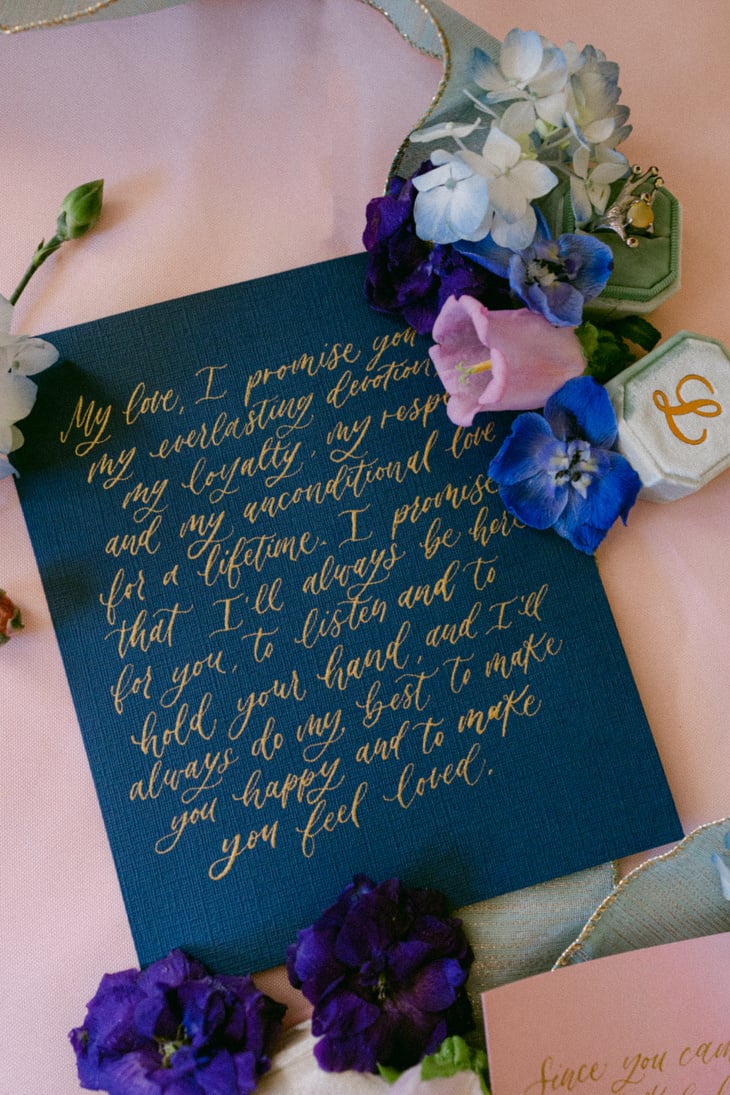 My love, I promise you
my everlasting devotion,
my loyalty, my
and my unconditional love
for a lifetime. I promise
that I'll always be here
for you, to listen and to
hold your hand, and I'll
always do my best to make
you happy and to make
you feel loved.
Since you